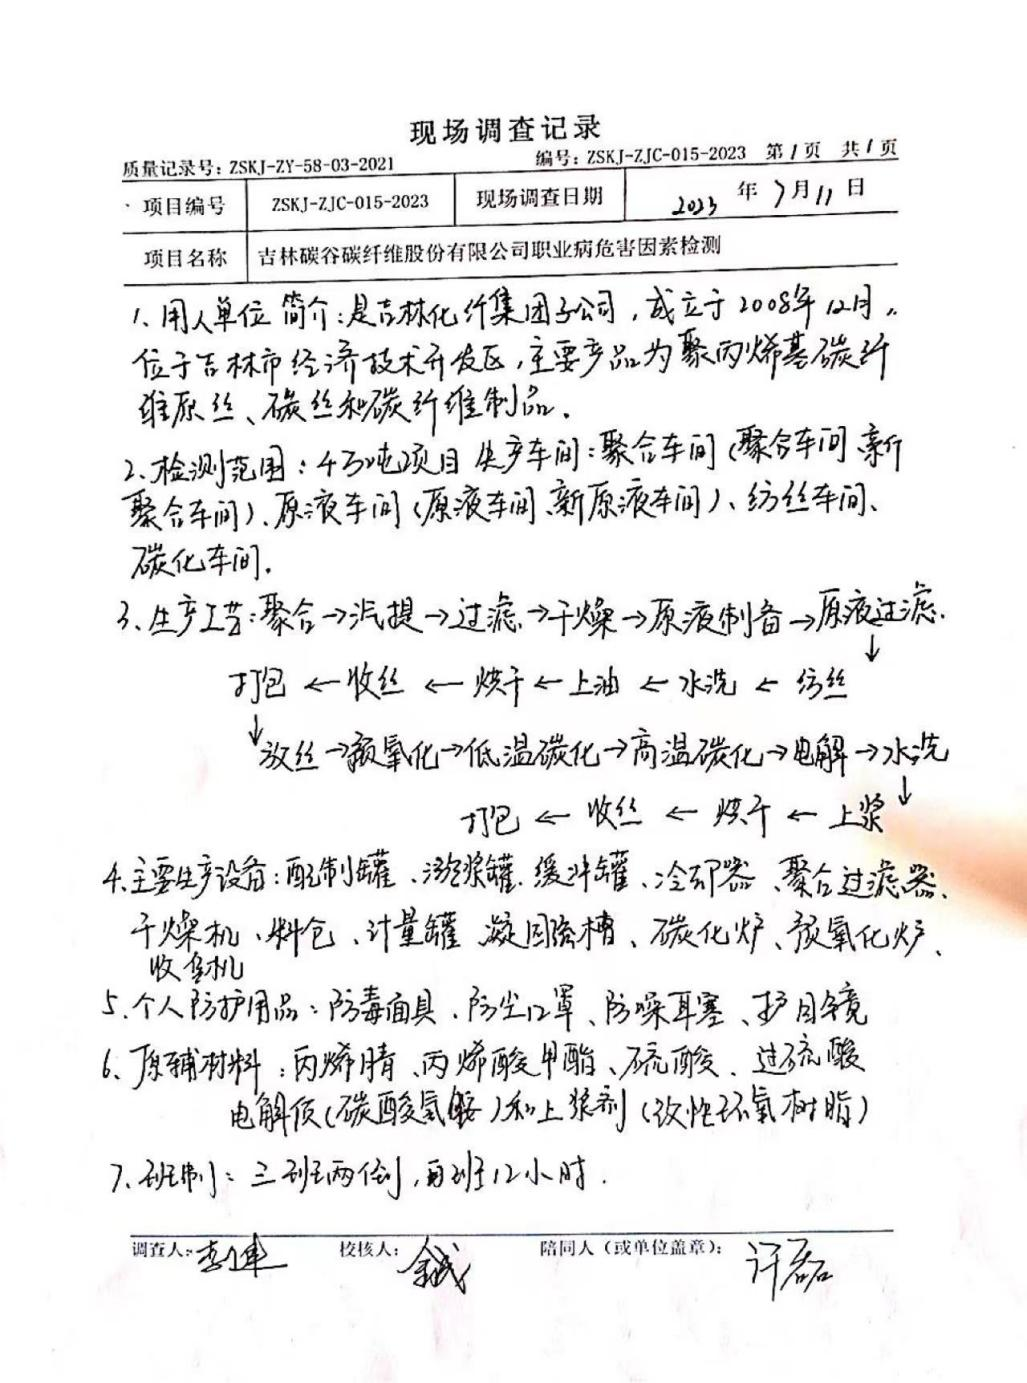 现场调查记录
质量记录号：ZSKJ-ZY-58-03-2021 编号：ZSKJ-ZJC-015-2023 第1页 共1页
项目编号 ZSKJ-ZJC-015-2023 现场调查日期 2023年7月11日
项目名称 吉林碳谷碳纤维股份有限公司职业病危害因素检测
1、用人单位简介：是吉林化纤集团子公司，成立于2008年12月，
位于吉林市经济技术开发区，主要产品为聚丙烯基碳纤
维原丝、碳丝和碳纤维制品。
2、检测范围：4万吨项目生产车间：聚合车间（聚合车间、新
聚合车间）、原液车间（原液车间、新原液车间）、纺丝车间、
碳化车间。
3、生产工艺：聚合→汽提→过滤→干燥→原液制备→原液过滤
↓
打包←收丝←烘干←上油←水洗←纺丝
↓
放丝→预氧化→低温碳化→高温碳化→电解→水洗
↓
打包←收丝←烘干←上浆
4、主要生产设备：配制罐、淤浆罐、缓冲罐、冷却器、聚合过滤器、
干燥机、料仓、计量罐、凝固浴槽、碳化炉、预氧化炉、
收卷机
5、个人防护用品：防毒面具、防尘口罩、防噪耳塞、护目镜
6、原辅材料：丙烯腈、丙烯酸甲酯、硫酸、过硫酸
电解质（碳酸氢铵）和上浆剂（改性环氧树脂）
7、班制：三班两倒，每班12小时.
调查人： 校核人： 陪同人（或单位盖章）：许磊